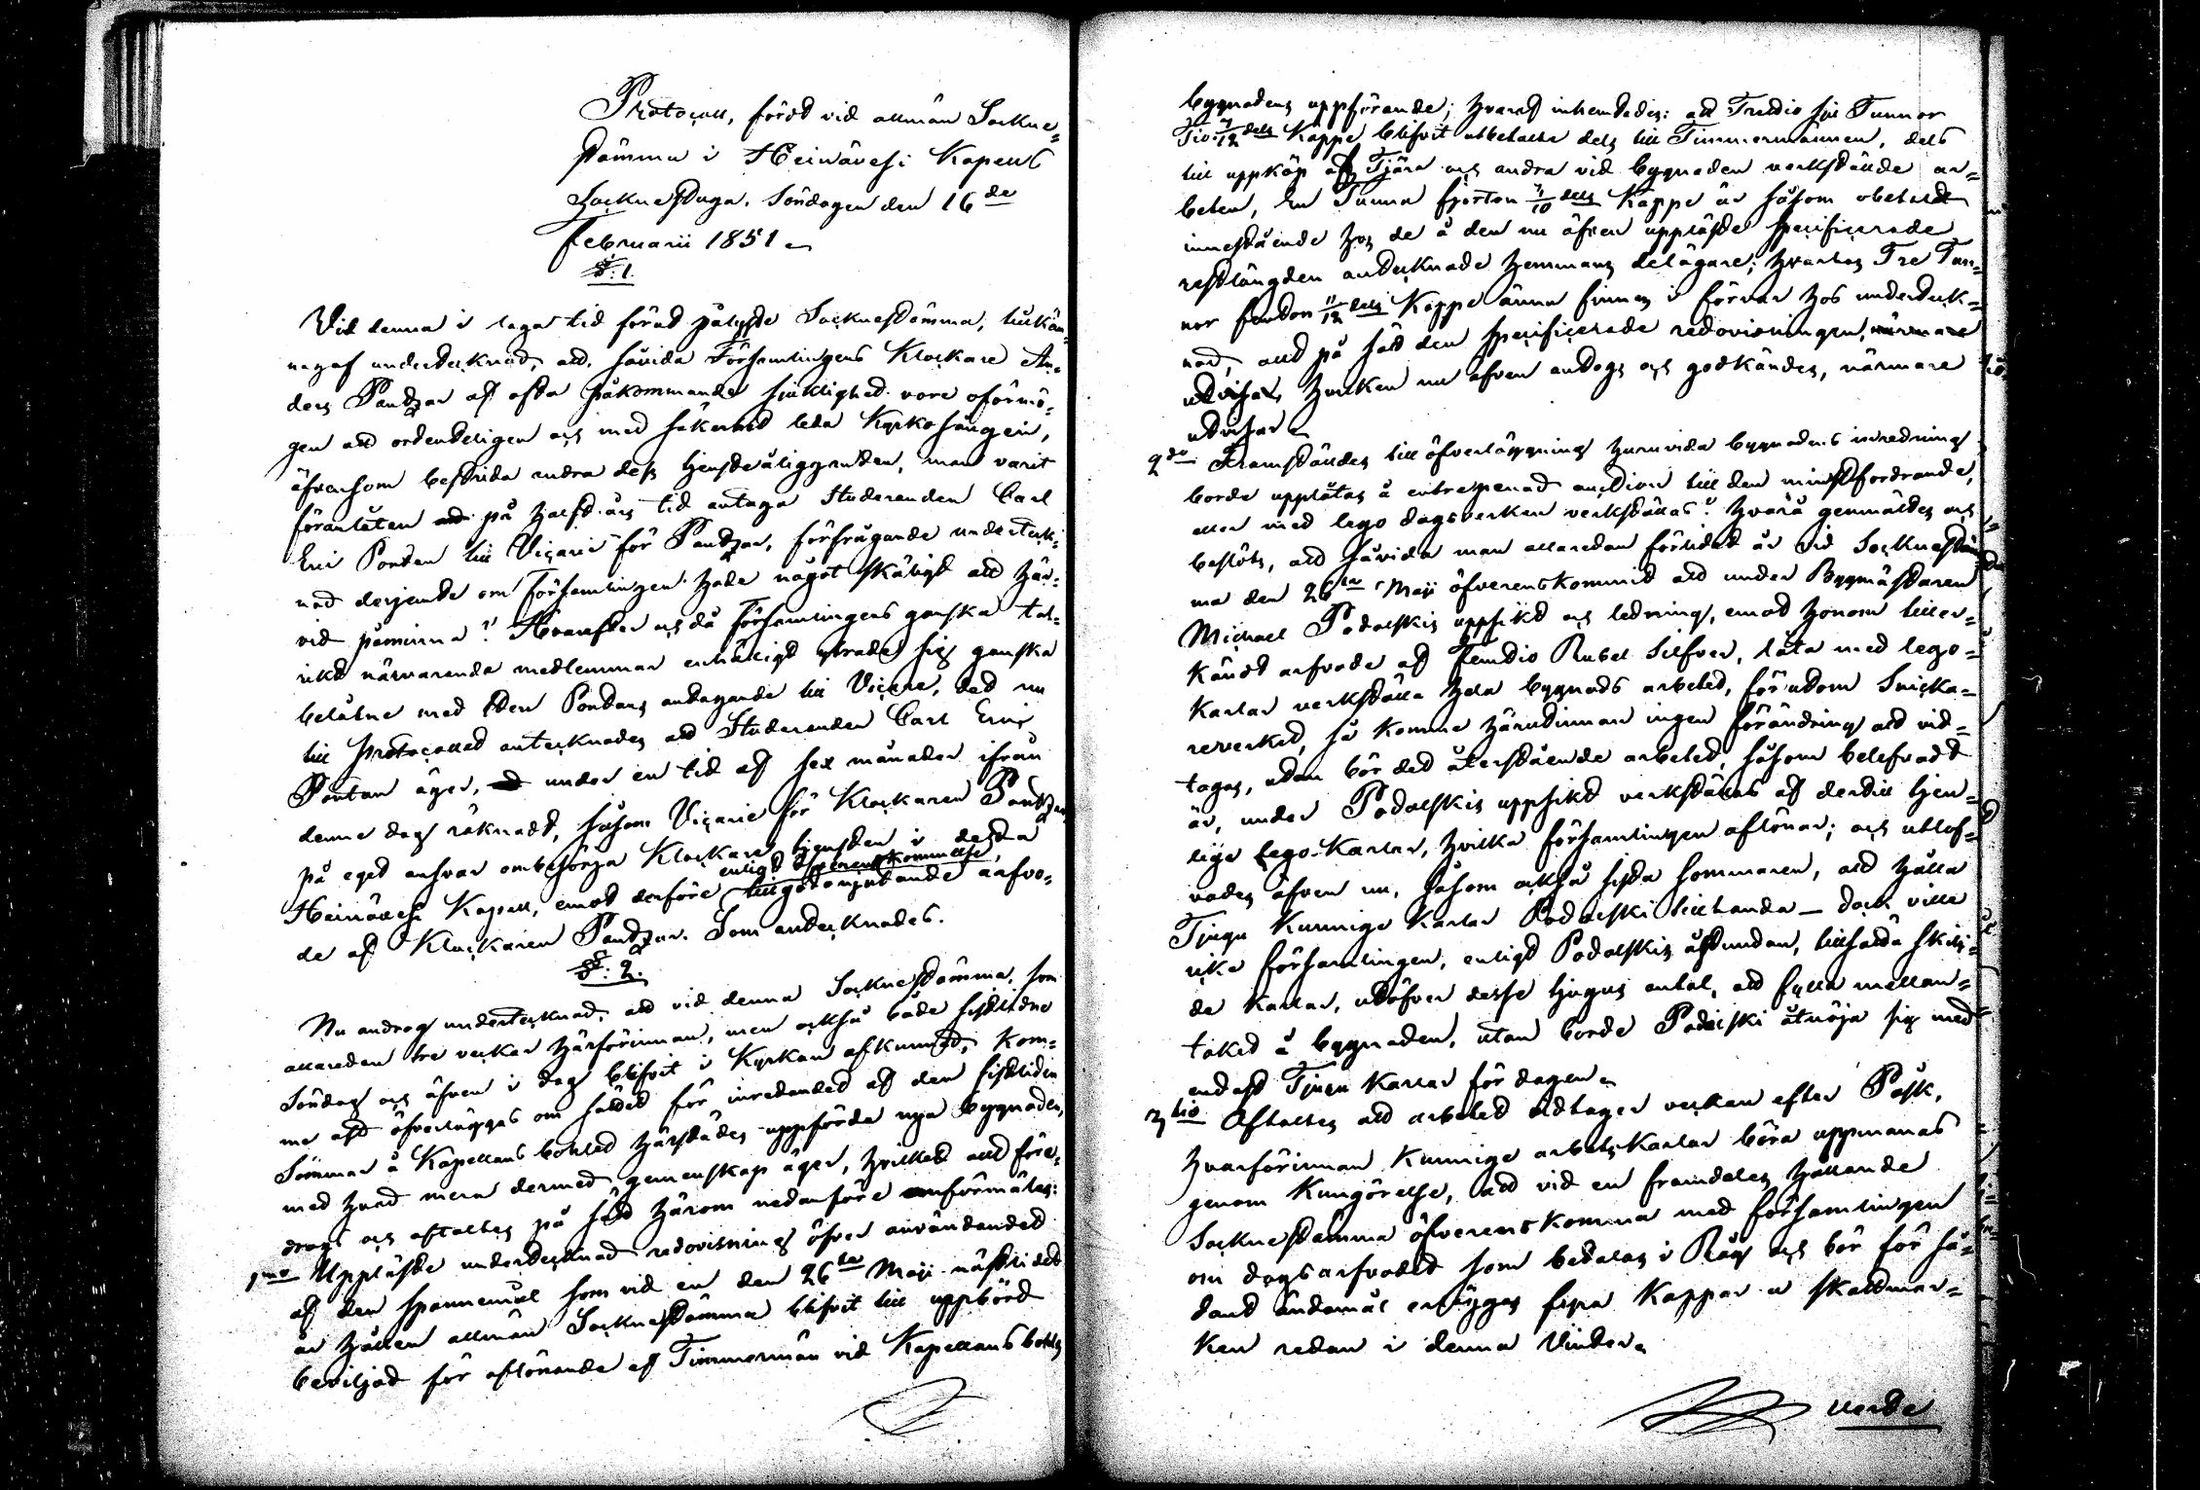 Protocoll, fördt vid allmän Sockne-
stämma i Heinävesi Kapells
Socknestuga, Söndagen den 16de
Februarii 1851.
§: 1.
Vid denna i laga tid förut pålyste Socknestämma, tillkän-
nagaf undertecknad, att, såvida Församlingens Klockare An-
ders Pandzar af ofta påkommande sjuklighet vore oförmö-
gen att ordenteligen och med säkerhet leda Kyrkosången,
äfvensom bestrida andra dess tjensteåligganden, man varit
föranlåten på half års tid antaga Studeranden Carl
Eric Pontan till Vicarie för Pandzar, förfrågande underteck-
nad derjemte om Församlingen hade något skäligt att här-
vid påminna? Hvarefter och då Församlingens ganska tal-
rikt närvarande medlemmar enhäligt yttrade sig ganska
belåtne med den Pontans antagande till Vicarie, det nu
till Protocollet antecknades att Studeranden Carl Eric
Pontan äger, under en tid af sex månader ifrån
denne dag räknadt, såsom Vicarie för Klockaren Pandzar
på eget ansvar ombesörja Klockare tjensten i detta
enligt öfverenskommelse
Heinävesi Kapell, emot derföre tillgodonjutande arfvo-
de af Klockaren Pandzar. Som antecknades.
§: 2.
Nu androg undertecknad, att vid denna Socknestämma, som
allaredan tre veckor härförinnan, men också både sistledne
Söndag och äfven i dag blifvit i Kyrkan afkunnad, kom-
me att öfverläggas om sättet för inredandet af den sistliden
Sommar å Kapellans bohlet härstädes uppförda nya byggnaden,
med hvad mera dermed gemenskap äger, hvilket allt före-
drogs och aftaltes på sätt härom nedanföre omförmäles:
1mo Upplästes undertecknads redovisning öfver användandet
af den spannemål som vid en den 26de Maji nästledet
år hållen allmän Socknestämma blifvit till uppbörd
beviljad för aflönande af Timmermän vid Kapellans bohls
byggnadens uppförande; hvaraf inhemtades: att Trettio sju Tunnor
Tio 7/12 dels Kappe blifvit utbetalte dels till Timmermännen, dels
till uppköp af Tjära och andra vid byggnaden verkstälde ar-
beten, En Tunna fjorton 7/10 dels Kappe är såsom obetald
innestående hos de å den nu äfven upplästa specificerade
restlängden antecknade hemmans delägare; hvarhos Tre Tun-
nor femton 11/12 dels Kappe ännu finnes i förvar hos underteck-
nad, allt på sätt den specificerade redovisningen,
hvilken nu äfven antogs och godkändes, närmare
utvisar.
2do Framstäldes till öfverläggning huruvida byggnadens inredning
borde upplåtas å entreprenad auction till den minstfordrande,
eller med lego dagsverken verkställas? Hvarå genmältes och
beslöts, att såvida man allaredan förlidet år vid Socknestäm-
ma den 26de Maji öfverenskommit att under Byggmästaren
Michael Podolskis uppsikt och ledning, emot honom tiller-
kändt arfvode af Femtio Rubel Silfver, låta med lego-
karlar verkställa hela byggnads arbetet, förutom Snicka-
reverket, så komme härutinnan ingen förändring att vid-
tagas, utan bör det återstående arbetet, såsom belefvadt
är, under Podolskis uppsikt verkställas af dertill tjen-
lige Lego-Karlar, hvilka församlingen aflönar; och utlof-
vades äfven nu, såsom också sista sommaren, att hålla
Tjugu Kunnige Karlar Podolski tillhanda — dock ville
icke församlingen, enligt Podolskis åstundan, tillhålla skilj-
de Karlar, utöfver desse tjugus antal, att fylla mellan-
taket å byggnaden, utan borde Podolski åtnöja sig med
endast Tjugu Karlar för dagen.
3tio Aftaltes att arbetet vidtager veckan efter Påsk,
hvarförinnan Kunnige arbets Karlar böra uppmanas
genom Kungörelse, att vid en framdeles hållande
Socknestämma öfverenskomma med församlingen
om dagsarfvodet som betalas i Råg och bör för så-
dant ändamål erläggas fyra Kappar u skattmar-
ken redan i denna Vinter.
verte